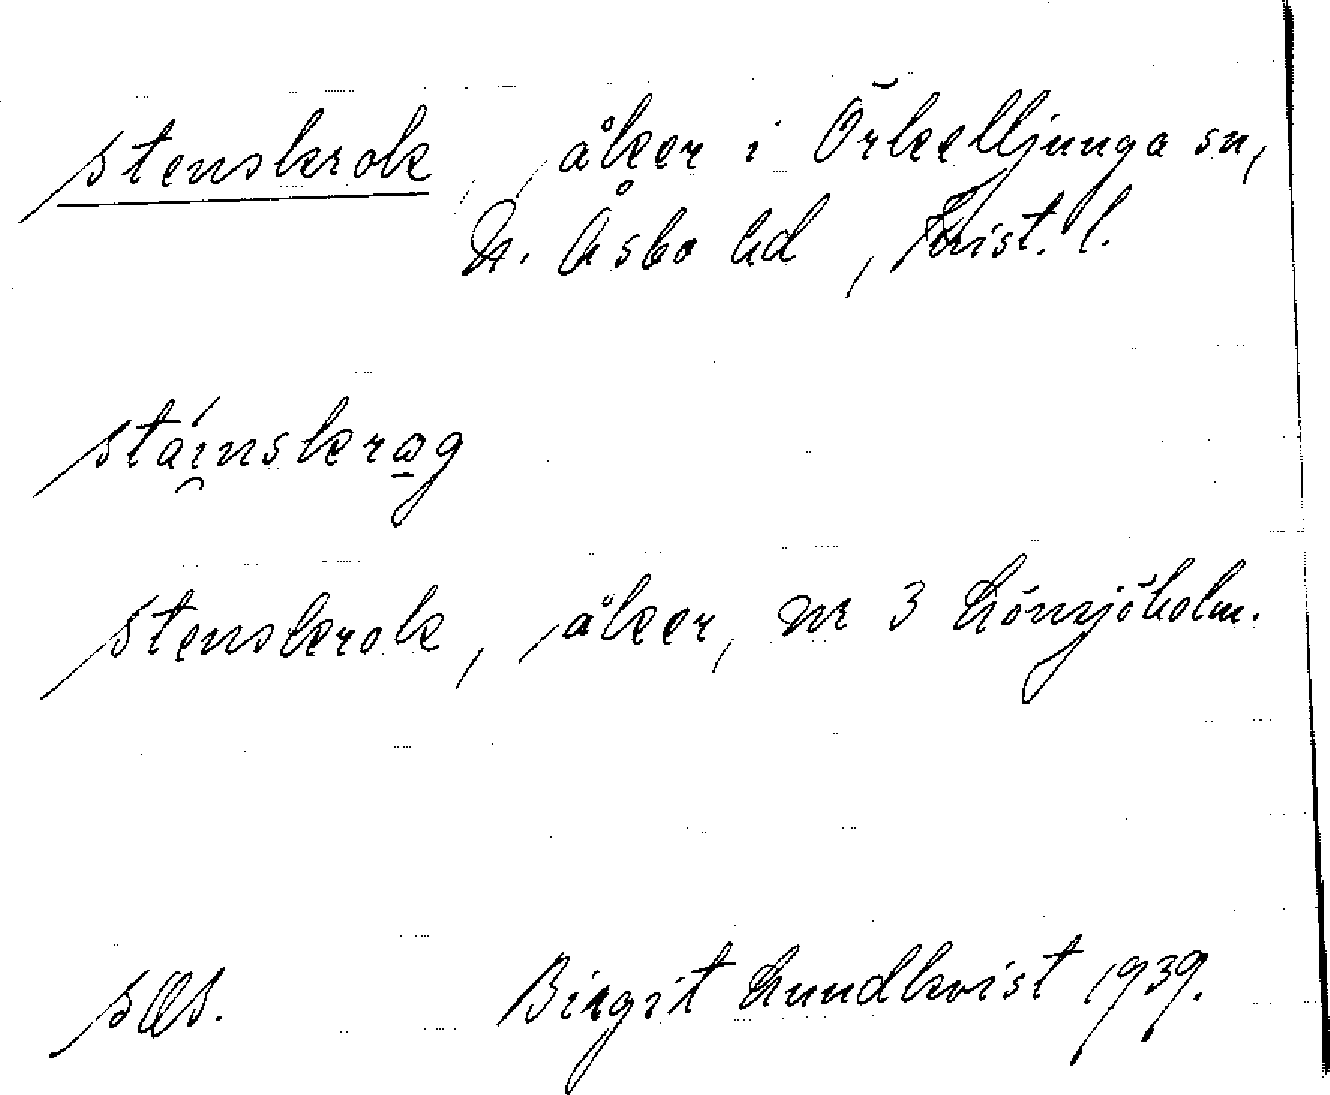 stenskrok, åker i Örkelljunga sn,
N. Åsbo hd, Krist. l.
stái̯nskrɷ̠g
stenskrok, åker, nr 3 Lönsjöholm.
Birgit Lundkvist 1939.